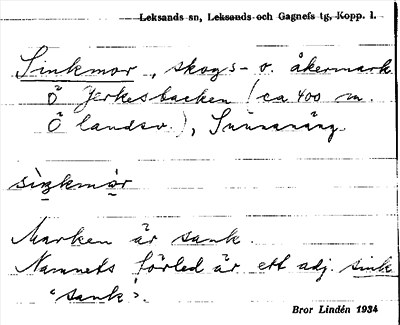 Leksands sn, Leksands och Gagnefs tg, Kopp. l.
Sinkmor, skogs- o. åkermark
Ö Jerkesbacken (ca 400 m.
Ö landsv.), Sunnanäng.
siŋkmòr
Marken är sank.
Namnets förled är ett adj. sink
'sank'.
Bror Lindén 1934